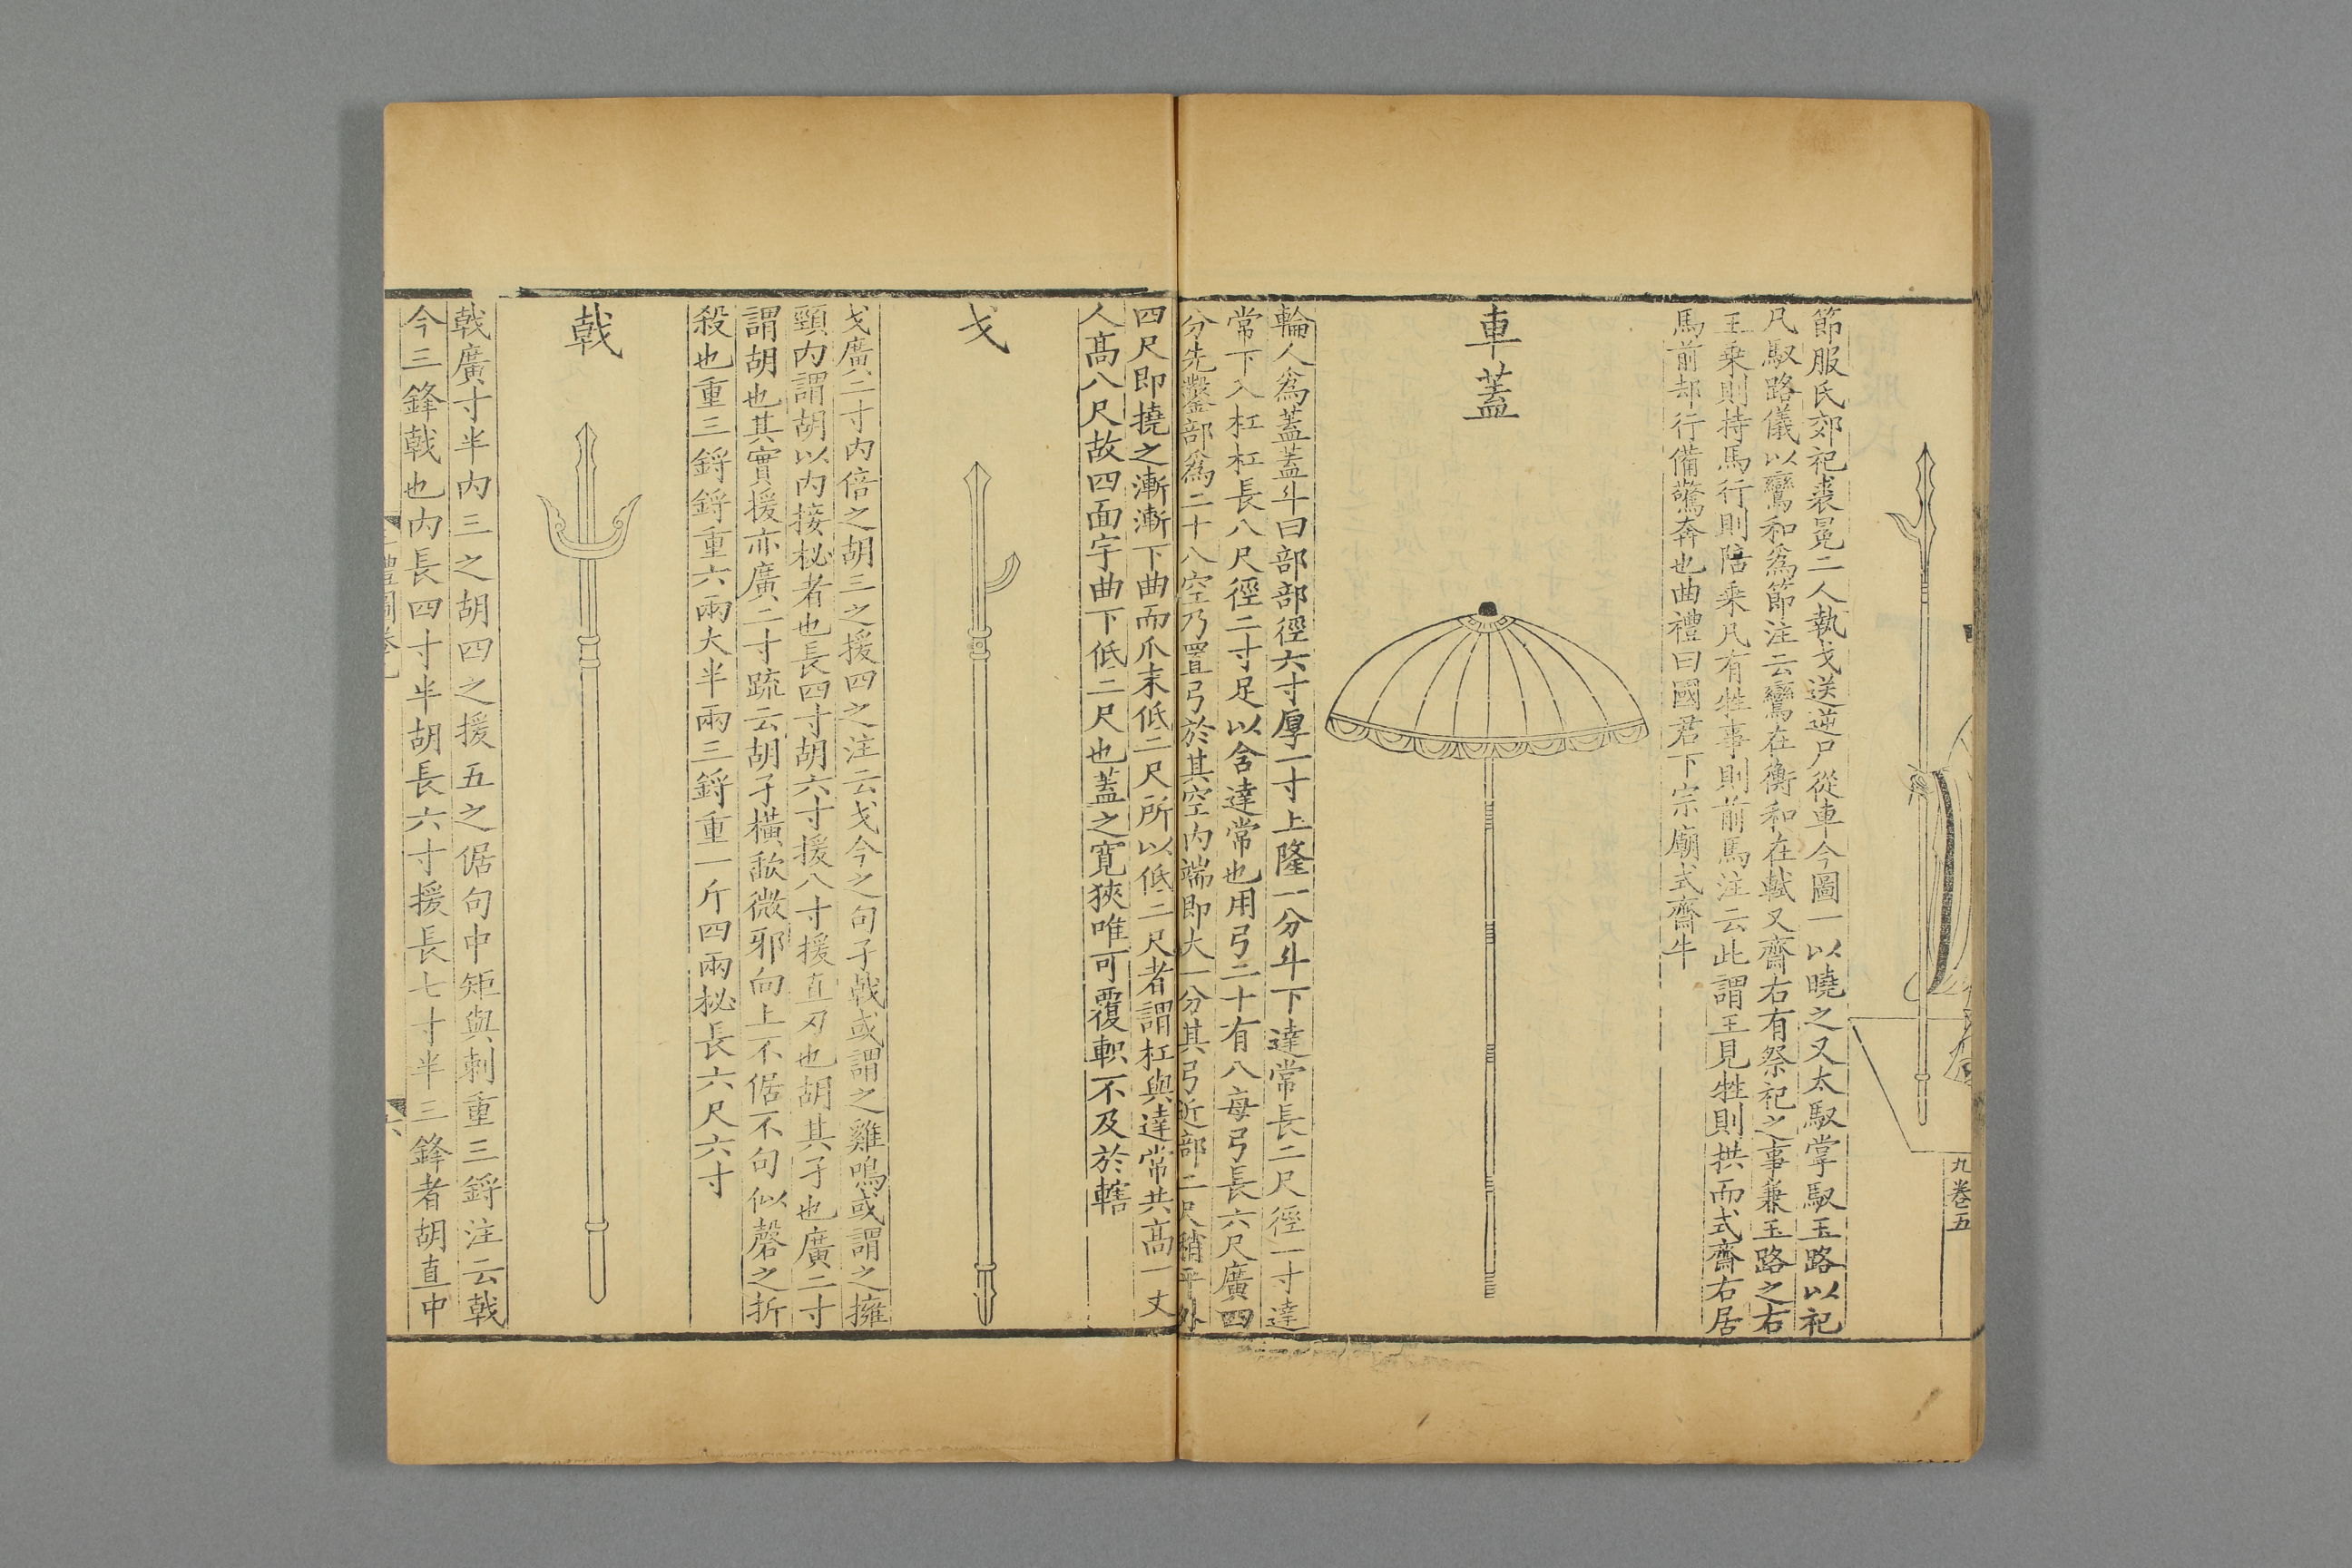 九卷五
節服氏郊祀裘冕二人執戈送逆尸從車今圖一以曉之又太馭掌馭玉路以祀
凡馭路儀以鸞和爲節注云鸞在衡和在軾又齋右有祭祀之事兼玉路之右
王乗則持馬行則陪乗凡有牲事則前馬注云此謂王見牲則拱而式齋右居
馬前却行備驚奔也曲禮曰國君下宗廟式齋牛
車蓋
輪人爲蓋蓋斗曰部部徑六寸厚一寸上隆一分斗下達常長二尺徑一寸達
常下入杠杠長八尺徑二寸足以含達常也用弓二十有八每弓長六尺廣四
分先鑿部爲二十八空乃置弓於其空内端即大一分其弓近部二尺稍平外
四尺即撓之漸漸下曲而爪末低二尺所以低二尺者謂杠與達常共髙一丈
人髙八尺故四面宇曲下低二尺也蓋之寛狹唯可覆軹不及於轄
戈
戈廣二寸内倍之胡三之援四之注云戈今之句孑戟或謂之雞鳴或謂之擁
頸内謂胡以内接柲者也長四寸胡六寸援八寸援直刃也胡其孑也廣二寸
謂胡也其實援亦廣二寸䟽云胡孑橫㪬微邪向上不倨不句似磬之折
殺也重三鋝鋝重六兩大半兩三鋝重一斤四兩柲長六尺六寸
戟
戟廣寸半内三之胡四之援五之倨句中矩與刺重三鋝注云戟
今三鋒戟也内長四寸半胡長六寸援長七寸半三鋒者胡直中
禮圖卷
六